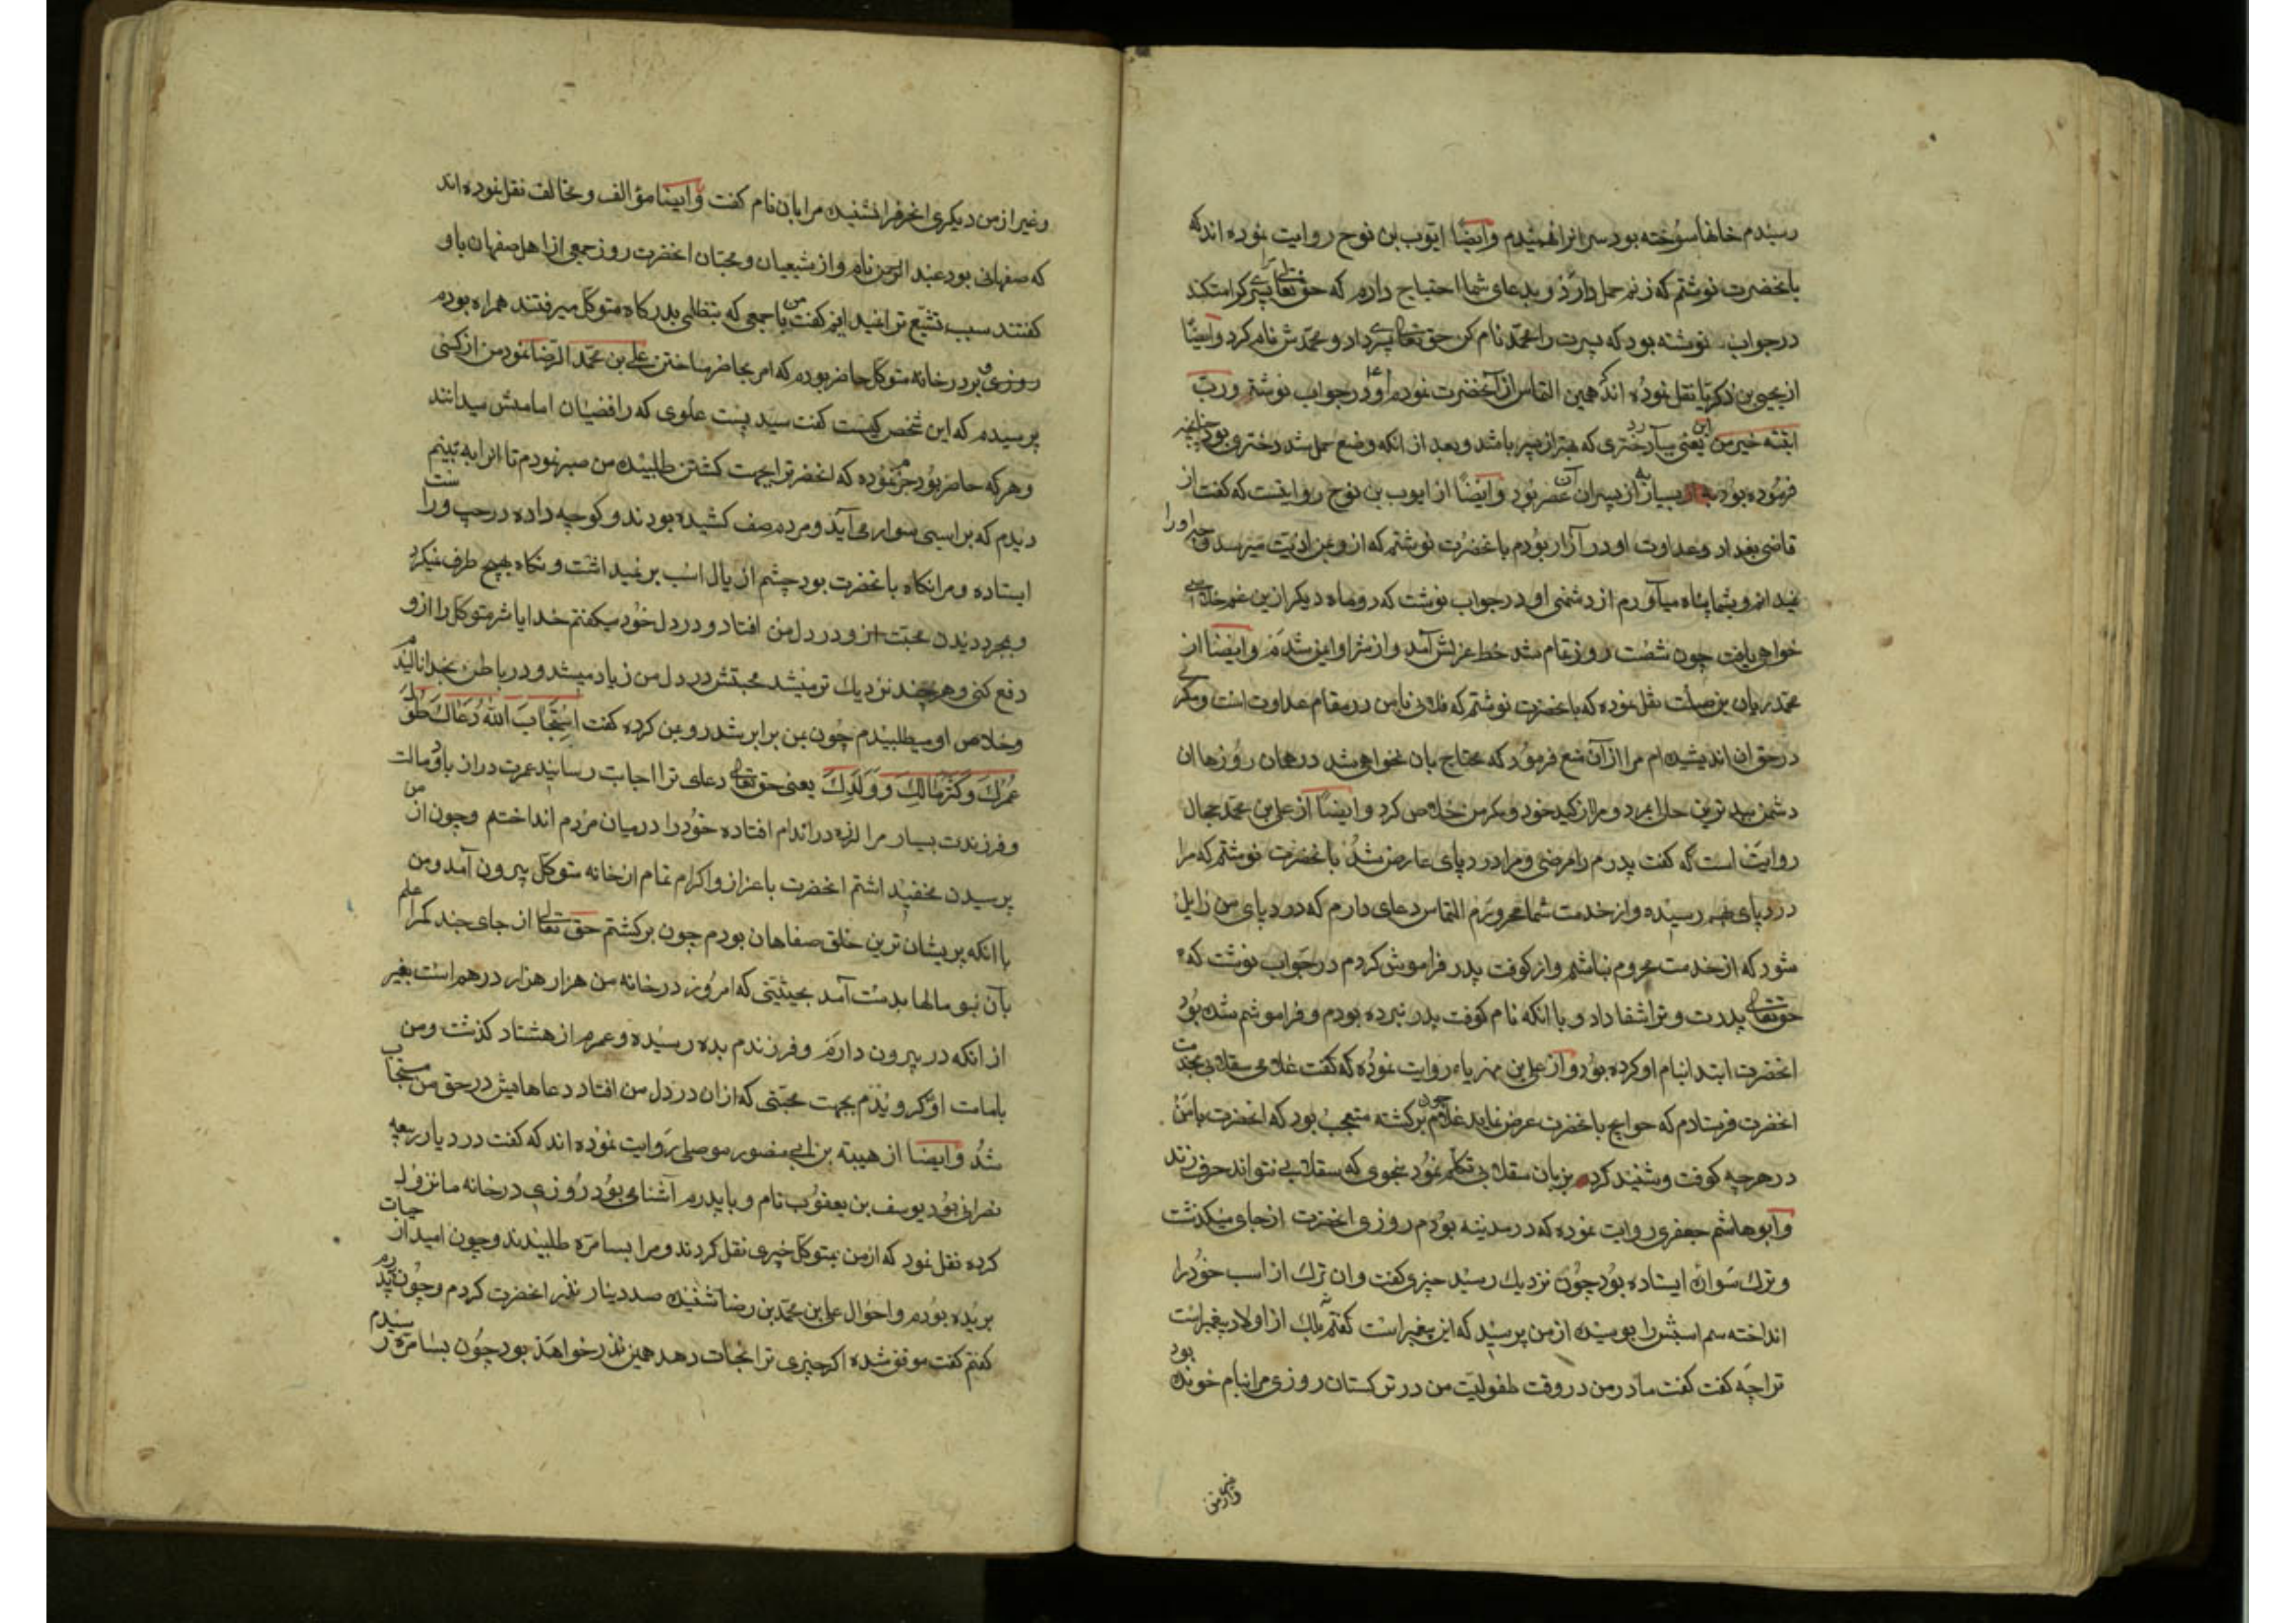 رسیدم خانها سوخته بود سر انرا فهمیدم وایضًا ایوب بن نوح روایت نموده اند که
بانحضرت نوشتم که زنم حمل دارد و بدعای شما احتیاج دارم که حق تعالی پسری کرامت کند
در جواب نوشته بود که پسرت را محمد نام کن حق تعالی پسری داد و محمدش نام کرد وایضًا
از یحیی بن زکریا نقل نموده اند که همین التماس از آنحضرت نمودم او در جواب نوشتم ورب
ابنته خیر من ابن یعنی بسا دختری که بهتر از پسر باشد و بعد از انکه وضع حمل شد دختری بود چنانچه
فرموده بود به از بسیاری از پسران آن عصر بود وایضًا از ایوب بن نوح روایتست که گفت از
قاضی بغداد و عداوت او در آزار بودم بانحضرت نوشتم که از و بمن اذیت میرسد و چاره اورا
نمیدانم و بشما پناه میآورم از دشمنی او در جواب نوشت که دو ماه دیکر ازین غم خلاصی
خواهی یافت چون شصت روز تمام شد خط عزلش آمد و از شر او ایمن شدم وایضًا از
محمد بن ریان بن صلت نقل نموده که بانحضرت نوشتم که فلانی با من در مقام عداوت است و مکری
در حق ان اندیشیده ام مرا از آن منع فرمود که محتاج بان نخواهی شد در همان روزها ان
دشمن ببدترین حال بمرد و مرا از کید خود و مکر من خلاص کرد وایضًا از علی بن محمد حجال
روایت است که گفت پدرم را مرضی و مرا درد پای عارض شد بانحضرت نوشتم که مرا
درد پای بهم رسیده و از خدمت شما محرومم التماس دعای دارم که درد پای من زایل
شود که از خدمت محروم نباشم و از کوفت پدر فراموش کردم در جواب نوشت که
حق تعالی پدرت و ترا شفا داد و با انکه نام کوفت پدر نبرده بودم و فراموشم شده بود
انحضرت ابتدا بنام او کرده بود و از علی بن مهزیار روایت نموده که گفت غلامی سقلابی بخدمت
انحضرت فرستادم که حوایج بانحضرت عرض نماید غلامم چون برکشته متعجب بود که انحضرت با من
در هر چه کوفت و شنید کرد بزبان سقلابی تکلم نمود بنحوی که سقلابی نتواند حرف زند
وابو هاشم جعفری روایت نموده که در مدینه بودم روزی انحضرت از جای میکذشت
و ترک سواره ایستاده بود چون نزدیک رسید چیزی گفت وان ترک از اسب خود را
انداخته سم اسبش را بوسیده از من پرسید که این پیغمبر است گفتم نه بلکه از اولاد پیغمبر است
ترا چه گفت گفت مادر من در وقت طفولیت من در ترکستان روزی مرا بنام خوانده بود
وغیر از من
وغیر از من دیکری انحرف را نشنیده مرا بان نام گفت وایضًا مؤالف و مخالف نقل نموده اند
که صفهانی بود عبد الرحمن نام و از شیعیان و محبان انحضرت روز جمعی از اهل صفهان باو
گفتند سبب تشیع ترا نمیدانیم گفت من با جمعی که بتظلم بدرکاه متوکل میرفتند همراه بودم
روزی بر در خانه متوکل حاضر بودم که امر بحاضر ساختن علی بن محمد الرضا نمود من از کسی
پرسیدم که این شخص کیست گفت سیدیست علوی که رافضیان امامش میدانند
وهر که حاضر بود جزم نموده که انحضرترا بجهت کشتن طلبیده من صبر نمودم تا انرا به بینم
دیدم که بر اسبی سوار می آید و مردم صف کشیده بودند و کوچه داده در چپ و راست
ایستاده و مرا نکاه بانحضرت بود چشم از یال اسب بر نمیداشت و نکاه بهیچ طرف نمیکرد
و بمجرد دیدن محبت از و در دل من افتاد و در دل خود میکفتم خدایا شر متوکل را ازو
دفع کنی و هر چند نزدیک تر میشد محبتش در دل من زیاد میشد و در باطن بخدا نالیدم
و خلاص او میطلبیدم چون بمن برابر شد رو بمن کرده گفت اِستَجابَ اللهُ دُعاكَ طَوَّلَ
عُمرَكَ وَكَثَّرَ مالَكَ وَوَلَدَكَ یعنی حق تعالی دعای ترا اجابت رسانید عمرت دراز باد و مالت
و فرزندت بسیار مرا لرزه در اندام افتاده خود را در میان مردم انداختم وچون از من
پرسیدن مخفی داشتم انحضرت باعزاز و اکرام تمام از خانه متوکل بیرون آمد ومن
با انکه پریشان ترین خلق صفاهان بودم چون برکشتم حق تعالی از جای چند که مرا علم
بآن نبود مالها بدست آمد بحیثیتی که امروز در خانه من هزار هزار درهم است بغیر
از انکه در بیرون دارم و فرزندم بده رسیده و عمرم از هشتاد کذشت ومن
بامامت او کرویدم بجهت محبتی که ازان در دل من افتاد دعاهایش در حق من مستجاب
شد وایضا از هیبته بن ابی منصور موصلی روایت نموده اند که گفت در دیار ربیعه
نصرانی بود یوسف بن یعقوب نام و با پدرم آشنای بود روزی در خانه ما نزول
کرده نقل نمود که از من بمتوکل خبری نقل کردند و مرا بسامره طلبیدند وچون امید از حیات
بریده بودم واحوال علی بن محمد بن رضا شنیده صد دینار نذر انحضرت کردم وچون بپدرم
گفتم گفت موفق شده اکر چیزی ترا نجات دهد همین نذر خواهد بود چون بسامره رسیدم